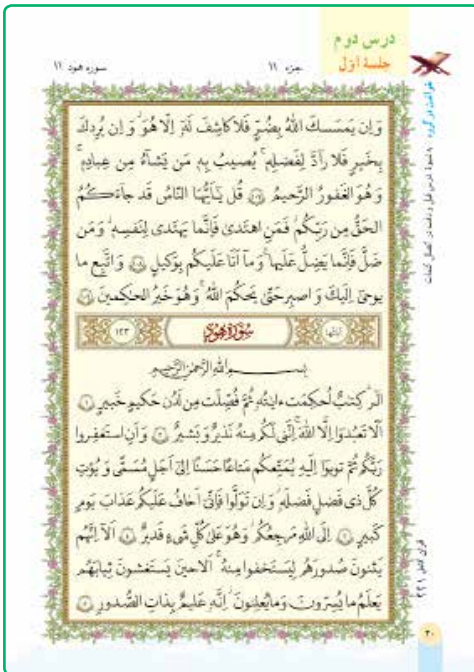 درس دوم
جلسهٔ اوّل
جزء ۱۱
سوره هود ۱۱
وَ اِن یَمسَسکَ اللّٰهُ بِضُرٍّ فَلا کاشِفَ لَهٗ اِلّا هُوَ وَ اِن یُرِدکَ
بِخَیرٍ فَلا رادَّ لِفَضلِهٖ یُصیبُ بِهٖ مَن یَشاءُ مِن عِبادِهٖ
وَ هُوَ الغَفورُ الرَّحیمُ ۱۰۷ قُل یٰاَیُّهَا النّاسُ قَد جاءَکُمُ
الحَقُّ مِن رَبِّکُم فَمَنِ اهتَدیٰ فَاِنَّما یَهتَدی لِنَفسِهٖ وَ مَن
ضَلَّ فَاِنَّما یَضِلُّ عَلَیها وَ ما اَنَا عَلَیکُم بِوَکیلٍ ۱۰۸ وَ اتَّبِع ما
یوحیٰ اِلَیکَ وَ اصبِر حَتّیٰ یَحکُمَ اللّٰهُ وَ هُوَ خَیرُ الحٰکِمینَ ۱۰۹
آیاتها سُورَةُ هُودٍ ۱۲۳
بِسمِ اللّٰهِ الرَّحمٰنِ الرَّحیمِ
الر کِتٰبٌ اُحکِمَت ءایٰتُهٗ ثُمَّ فُصِّلَت مِن لَدُن حَکیمٍ خَبیرٍ ۱
اَلّا تَعبُدوا اِلَّا اللّٰهَ اِنَّنی لَکُم مِنهُ نَذیرٌ وَ بَشیرٌ ۲ وَ اَنِ استَغفِروا
رَبَّکُم ثُمَّ توبوا اِلَیهِ یُمَتِّعکُم مَتاعًا حَسَنًا اِلیٰ اَجَلٍ مُسَمًّی وَ یُؤتِ
کُلَّ ذی فَضلٍ فَضلَهٗ وَ اِن تَوَلَّوا فَاِنّی اَخافُ عَلَیکُم عَذابَ یَومٍ
کَبیرٍ ۳ اِلَی اللّٰهِ مَرجِعُکُم وَ هُوَ عَلیٰ کُلِّ شَیءٍ قَدیرٌ ۴ اَلا اِنَّهُم
یَثنونَ صُدورَهُم لِیَستَخفوا مِنهُ اَلا حینَ یَستَغشونَ ثِیابَهُم
یَعلَمُ ما یُسِرّونَ وَ ما یُعلِنونَ اِنَّهٗ عَلیمٌ بِذاتِ الصُّدورِ ۵
قرآن کامل ۲۲۱
۲۰